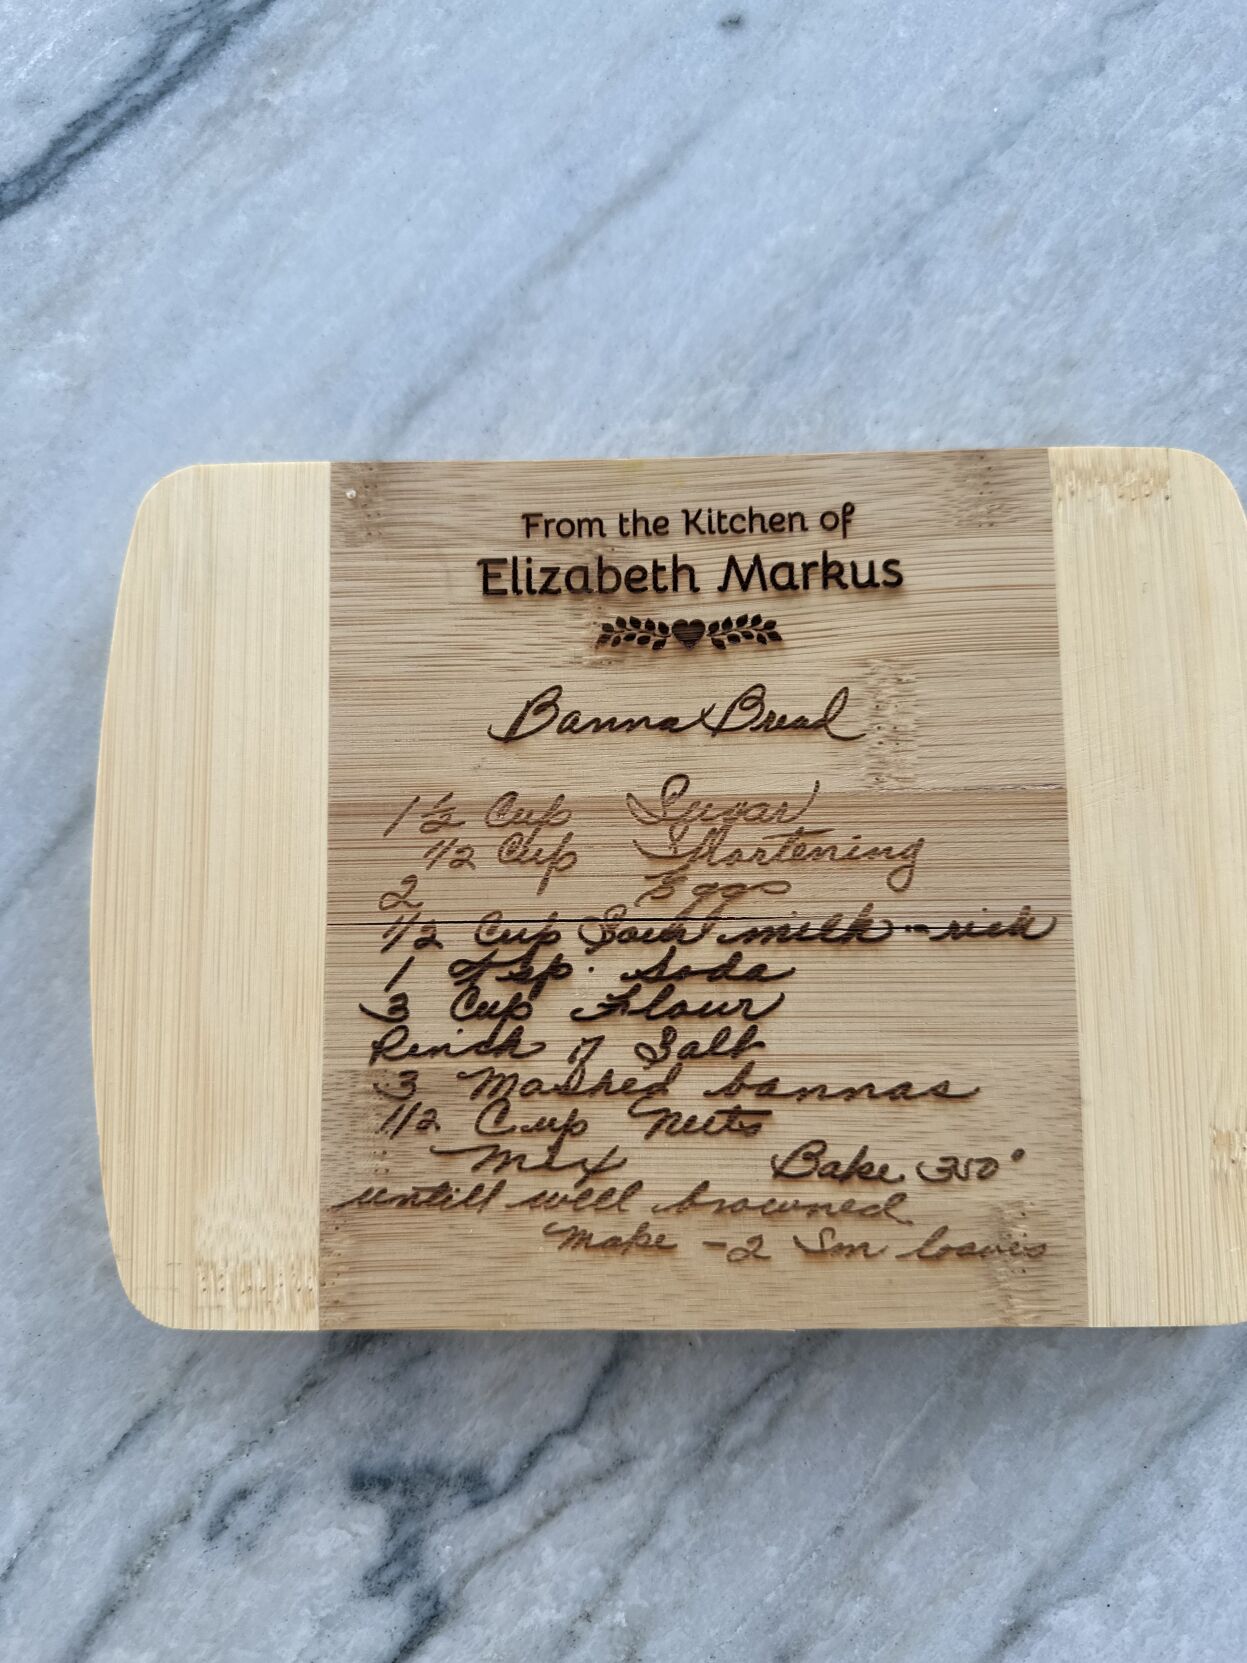 From the Kitchen of
Elizabeth Markus
Banna Bread
1 1/2 Cup Sugar
1/2 Cup Shortening
2 Eggs
1/2 Cup Sour milk - rich
1 tsp. Soda
3 Cup Flour
Pinch of Salt
3 Mashed bannas
1/2 Cup Nuts
Mix Bake 350°
untill well browned
Make - 2 Sm loaves